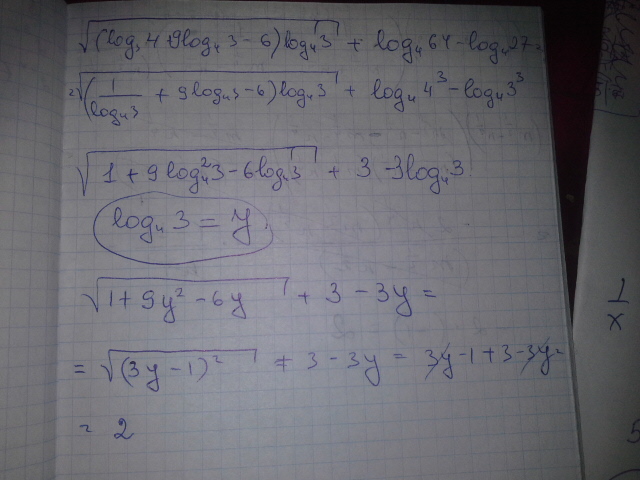 √((log₃4 + 9log₄3 - 6)log₄3) + log₄64 - log₄27 =
= √((1/log₄3 + 9log₄3 - 6)log₄3) + log₄4³ - log₄3³
√(1 + 9log₄²3 - 6log₄3) + 3 - 3log₄3
log₄3 = y
√(1 + 9y² - 6y) + 3 - 3y =
= √((3y - 1)²) + 3 - 3y = 3y - 1 + 3 - 3y =
= 2